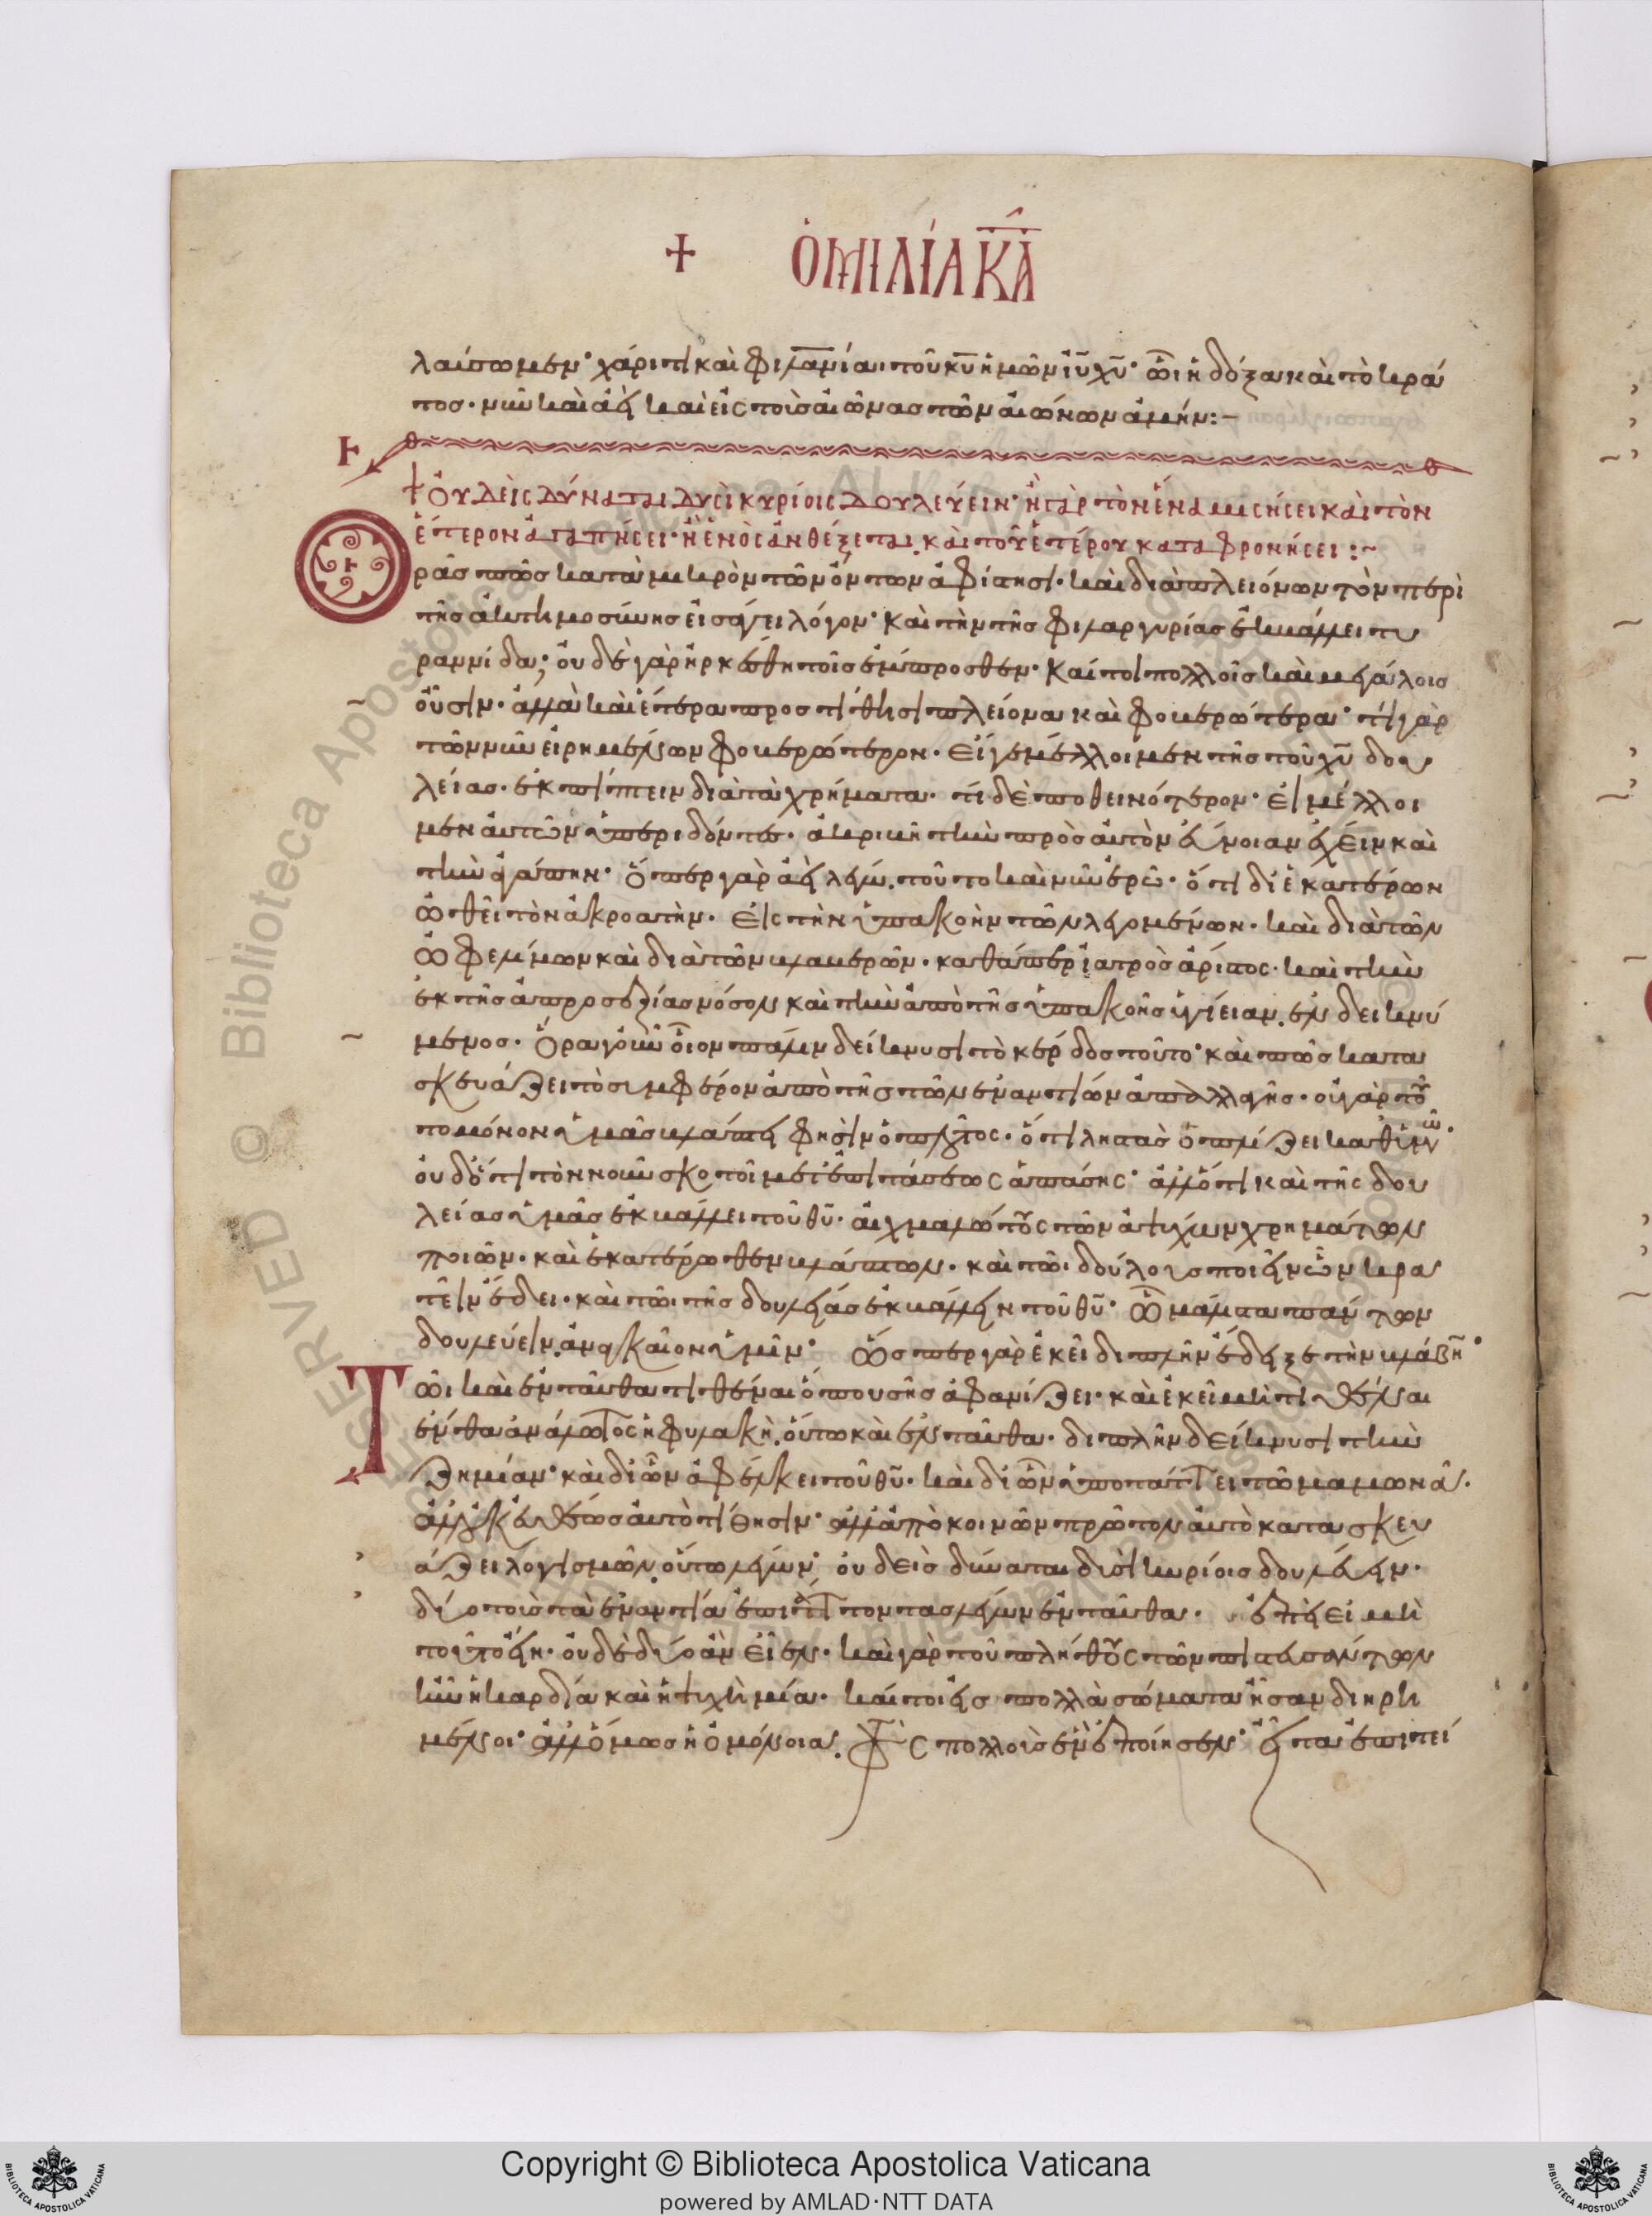 + ὉΜΙΛΊΑ ΚΑ
λαύσωμεν· χάριτι καὶ φιλανία· τοῦ κυ ἡμῶν ιυ χυ· ὧι ἡ δόξα καὶ τὸ κρά
τος· νῦν καὶ ἀεὶ καὶ εἰς τοὺς αἰῶνας τῶν αἰώνων ἀμήν:-
+ Οὐδεὶς δύναται δυσὶ κυρίοις δουλεύειν· ἢ γὰρ τὸν ἕνα μισήσει καὶ τὸν
ἕτερον ἀγαπήσει· ἢ ἑνὸς ἀνθέξεται, καὶ τοῦ ἑτέρου καταφρονήσει:~
Ὁρᾶς πῶς κατὰ μικρὸν τῶν ὄντων ἀφίστησι· καὶ διὰ πλειόνων τὸν περὶ
τῆς ἀκτημοσύνης εἰσάγει λόγον· καὶ τὴν τῆς φιλαργυρίας ἐκβάλλει τυ
ραννίδα; οὐδὲ γὰρ ἠρκέσθη τοῖς ἔμπροσθεν· καίτοι πολλοῖς καὶ μεγάλοις
οὖσιν· ἀλλὰ καὶ ἕτερα προστίθησι πλείονα καὶ φοβερώτερα· τί γὰρ
τῶν νῦν εἰρημένων φοβερώτερον· εἴ γε μέλλοιμεν τῆς τοῦ χυ δου
λείας· ἐκπίπτειν διὰ τὰ χρήματα· τί δὲ ποθεινότερον· εἰ μέλλοι
μεν αὐτῶν ὑπεριδόντες· ἀκριβῆ τὴν πρὸς αὐτὸν εὔνοιαν ἔχειν καὶ
τὴν ἀγάπην· ὅπερ γὰρ ἀεὶ λέγω, τοῦτο καὶ νῦν ἐρῶ· ὅτι δι' ἑκατέρων
ὠθεῖ τὸν ἀκροατὴν· εἰς τὴν ὑπακοὴν τῶν λεγομένων· καὶ διὰ τῶν
ὠφελίμων καὶ διὰ τῶν βλαβερῶν· καθάπερ ἰατρὸς ἄριστος· καὶ τὴν
ἐκ τῆς ἀπροσεξίας νόσον καὶ τὴν ἀπὸ τῆς ὑπακοῆς ὑγίειαν, ἐνδεικνύ
μενος· Ὅρα γοῦν οἷον πάλιν δείκνυσι τὸ κέρδος τοῦτο· καὶ πῶς κατα
σκευάζει τὸ συμφέρον ἀπὸ τῆς τῶν ἐναντίων ἀπαλλαγῆς· οὐ γὰρ τοῦ
το μόνον ὑμᾶς βλάπτει φησὶν ὁ πλοῦτος· ὅτι ληστὰς ὁπλίζει καθ' ὑμῶν·
οὐδ' ὅτι τὸν νοῦν σκοτοῖ μετ' ἐπιτάσεως ἁπάσης· ἀλλ' ὅτι καὶ τῆς δου
λείας ὑμᾶς ἐκβάλλει τοῦ θυ· αἰχμαλώτους τῶν ἀψύχων χρημάτων
ποιῶν· καὶ ἑκατέρωθεν βλάπτων· καὶ τῶι δούλους ποιεῖν ὧν κρα
τεῖν ἔδει· καὶ τῶι τῆς δουλείας ἐκβάλλειν τοῦ θυ· ὧι μάλιστα πάντων
δουλεύειν, ἀναγκαῖον ὑμῖν· Ὥσπερ γὰρ ἐκεῖ διπλῆν ἔδειξε τὴν βλάβην·
Τῶι καὶ ἐνταῦθα τιθέναι ὅπου σὴς ἀφανίζει· καὶ ἐκεῖ μὴ τιθέναι
ἔνθα ἀνάλωτος ἡ φυλακὴ, οὕτω καὶ ἐνταῦθα· διπλῆν δείκνυσι τὴν
ζημίαν· καὶ δι' ὧν ἀφέλκει τοῦ θυ· καὶ δι' ὧν ὑποτάττει τῶ μαμωνᾶ·
ἀλλ' οὐκ εὐθέως αὐτὸ τίθησιν· ἀλλ' ἀπὸ κοινῶν πρῶτον αὐτὸ κατασκευ
άζει λογισμῶν, οὕτω λέγων· οὐδεὶς δύναται δυσὶ κυρίοις δουλεύειν·
δύο τοὺς τὰ ἐναντία ἐπιτάττοντας λέγων ἐνταῦθα· ἐπεὶ εἰ μὴ
τοῦτο εἴη· οὐδὲ δύο ἂν εἶεν· καὶ γὰρ τοῦ πλήθους τῶν πιστευσάντων
ἦν ἡ καρδία καὶ ἡ ψυχὴ μία· καίτοι εἰς πολλὰ σώματα ἦσαν διηρη
μένοι· ἀλλ' ὅμως ἡ ὁμόνοια, τοὺς πολλοὺς ἓν ἐποίησεν· εἶτα ἐπιτεί